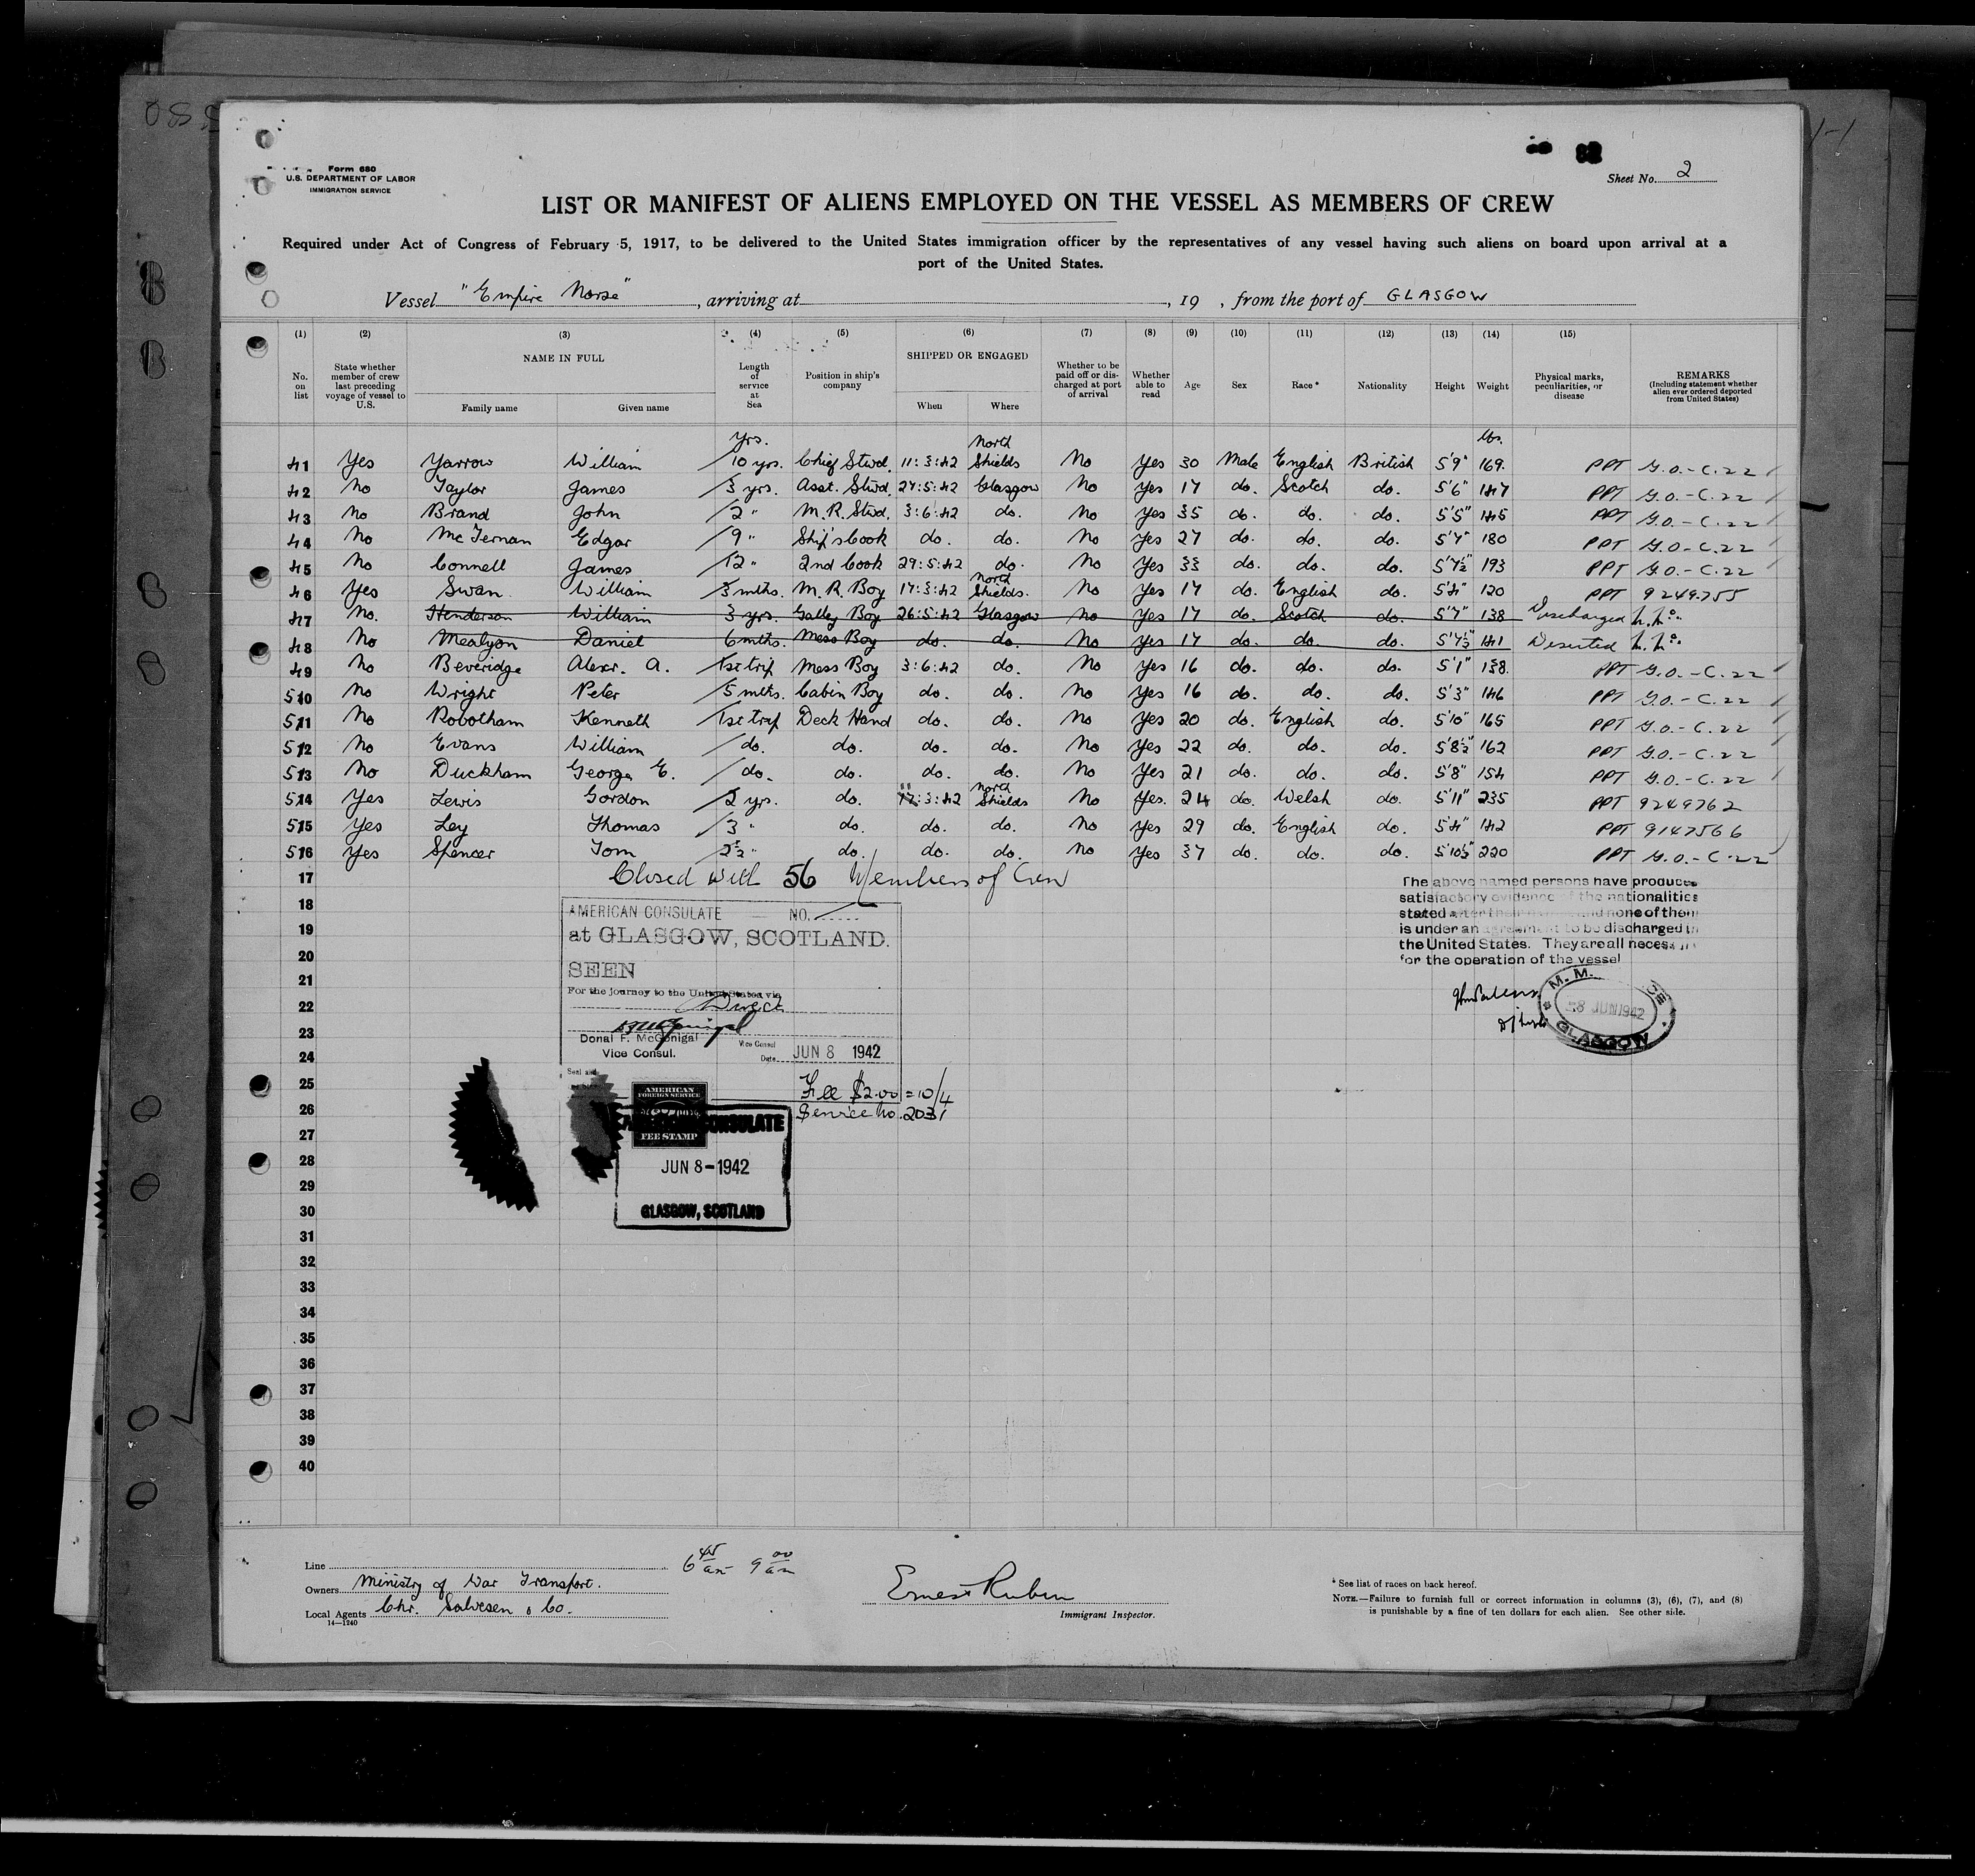 Form 680
U.S. DEPARTMENT OF LABOR
IMMIGRATION SERVICE
Sheet No. 2
LIST OR MANIFEST OF ALIENS EMPLOYED ON THE VESSEL AS MEMBERS OF CREW
Required under Act of Congress of February 5, 1917, to be delivered to the United States immigration officer by the representatives of any vessel having such aliens on board upon arrival at a
port of the United States.
Vessel "Empire Norse", arriving at , 19 , from the port of GLASGOW
(1) (2) (3) (4) (5) (6) (7) (8) (9) (10) (11) (12) (13) (14) (15)
No. on list State whether member of crew last preceding voyage of vessel to U.S. NAME IN FULL Family name Given name Length of service at Sea Position in ship's company SHIPPED OR ENGAGED When Where Whether to be paid off or discharged at port of arrival Whether able to read Age Sex Race* Nationality Height Weight Physical marks, peculiarities, or disease REMARKS (Including statement whether alien ever ordered deported from United States)
yrs. lbs.
41 Yes Yarrow William 10 yrs. Chief Stwd. 11:3:42 North Shields No Yes 30 Male English British 5'9" 169. PPT G.O.-C.22
42 No Taylor James 3 yrs. Asst. Stwd. 27:5:42 Glasgow No Yes 17 do. Scotch do. 5'6" 147 PPT G.O.-C.22
43 No Brand John 2 " M.R. Stwd. 3:6:42 do. No Yes 35 do. do. do. 5'5" 145 PPT G.O.-C.22
44 No McTernan Edgar 9 " Ship's Cook do. do. No Yes 27 do. do. do. 5'7" 180 PPT G.O.-C.22
45 No Connell James 12 " 2nd Cook 29:5:42 do. No Yes 33 do. do. do. 5'7½" 193 PPT G.O.-C.22
46 Yes Swan William 3 mths. M.R. Boy 17:3:42 North Shields. No Yes 17 do. English do. 5'4" 120 PPT 9249755
47 No. Henderson William 3 yrs. Galley Boy 26:5:42 Glasgow No Yes 17 do. Scotch do. 5'7" 138 Discharged
48 No Mealyon Daniel 6 mths. Mess Boy do. do. No Yes 17 do. do. do. 5'7½" 141 Deserted
49 No Beveridge Alexr. A. 1st trip Mess Boy 3:6:42 do. No Yes 16 do. do. do. 5'1" 138 PPT G.O.-C.22
50 No Wright Peter 5 mths. Cabin Boy do. do. No Yes 16 do. do. do. 5'3" 146 PPT G.O.-C.22
51 No Robotham Kenneth 1st trip Deck Hand do. do. No Yes 20 do. English do. 5'10" 165 PPT G.O.-C.22
52 No Evans William do. do. do. do. No Yes 22 do. do. do. 5'8½" 162 PPT G.O.-C.22
53 No Duckham George E. do. do. do. do. No Yes 21 do. do. do. 5'8" 154 PPT G.O.-C.22
54 Yes Lewis Gordon 2 yrs. do. 11:3:42 North Shields No Yes. 24 do. Welsh do. 5'11" 235 PPT 9249762
55 Yes Ley Thomas 3 " do. do. do. No Yes 29 do. English do. 5'4" 142 PPT 9147566
56 Yes Spencer Tom 2½ " do. do. do. No Yes 37 do. do. do. 5'10½" 220 PPT G.O.-C.22
17 Closed with 56 Members of Crew
The above named persons have produced
satisfactory evidence of the nationalities
stated after their names and none of them
is under an agreement to be discharged in
the United States. They are all necessary
for the operation of the vessel
18 AMERICAN CONSULATE NO.
19 at GLASGOW, SCOTLAND.
20
21 SEEN
For the journey to the United States via
22 Direct
23
Donal F. McGonigal
24 Vice Consul. Vice Consul Date JUN 8 1942
M.M. 8 JUN 1942 GLASGOW
25 Seal and
Fee $2.00 = 10/4
26 Service No. 2031
AMERICAN FOREIGN SERVICE FEE STAMP
27 AMERICAN CONSULATE
28 JUN 8-1942
29
30 GLASGOW, SCOTLAND
31
32
33
34
35
36
37
38
39
40
Line
6 45 am 9 00 am
Owners Ministry of War Transport.
Local Agents Chr. Salvesen & Co.
14—1240
Ernest Rubin
Immigrant Inspector.
* See list of races on back hereof.
NOTE.—Failure to furnish full or correct information in columns (3), (6), (7), and (8)
is punishable by a fine of ten dollars for each alien. See other side.